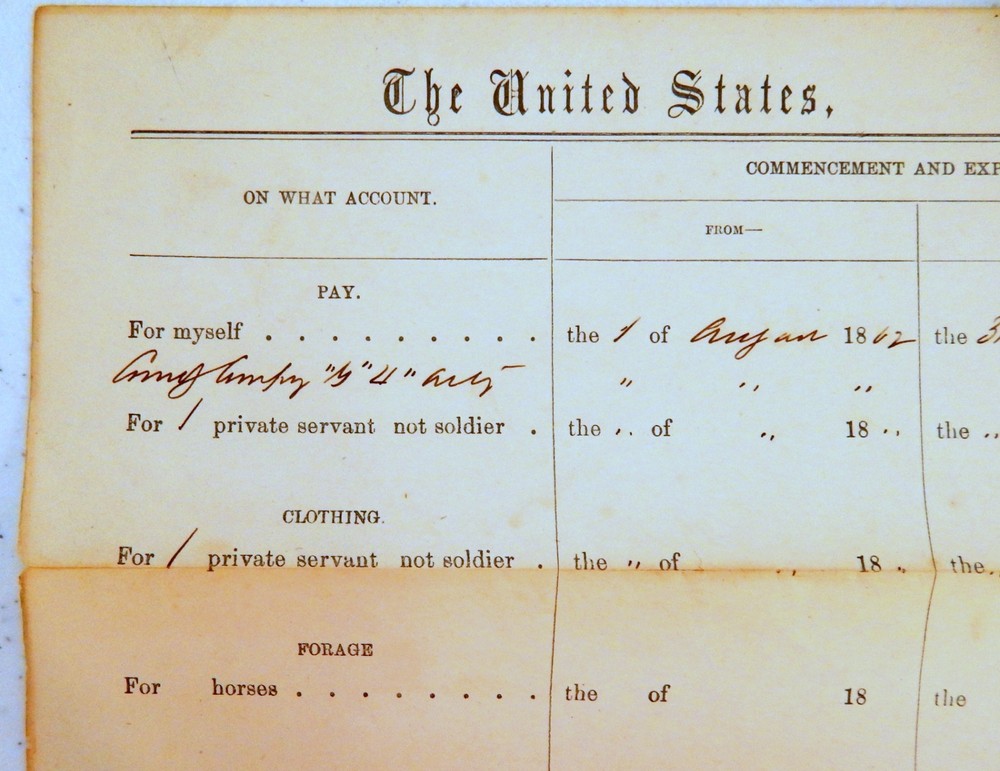 The United States,
COMMENCEMENT AND EXP
ON WHAT ACCOUNT.
FROM—
PAY.
For myself . . . . . . . . . . the 1 of August 1862 the 3
Comdg Compy "G" 4" Arty " " "
For 1 private servant not soldier . the " of " 18 " the "
CLOTHING.
For 1 private servant not soldier . the " of " 18 " the "
FORAGE
For horses . . . . . . . . the of 18 the